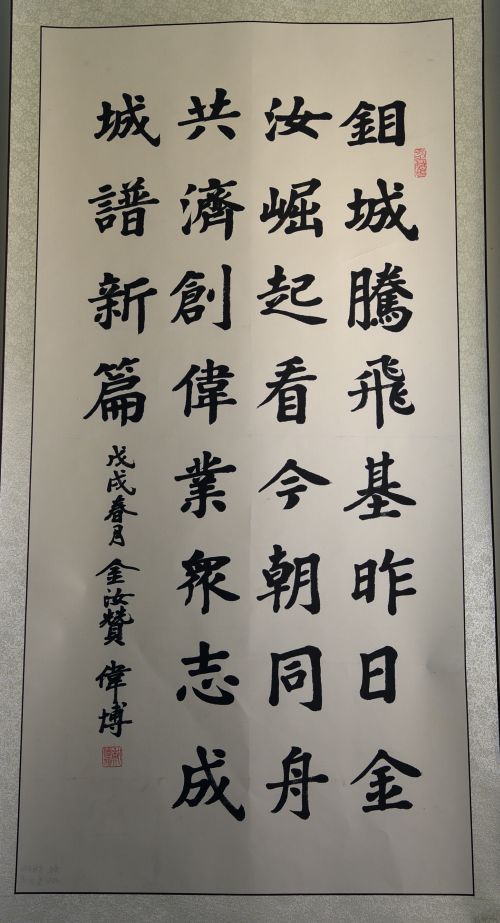 鉬城騰飛基昨日金
汝崛起看今朝同舟
共濟創偉業眾志成
城譜新篇
戊戌春月金汝贊偉博